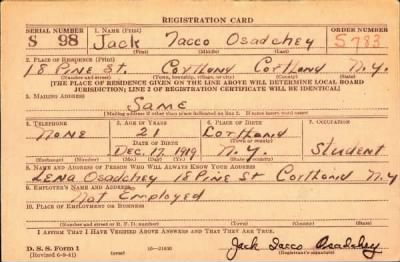 REGISTRATION CARD
SERIAL NUMBER 1. NAME (Print) ORDER NUMBER
S 98 Jack Iacco Osadchey S783
(First) (Middle) (Last)
2. PLACE OF RESIDENCE (Print)
18 Pine St. Cortland Cortland N.Y.
(Number and street) (Town, township, village, or city) (County) (State)
[THE PLACE OF RESIDENCE GIVEN ON THE LINE ABOVE WILL DETERMINE LOCAL BOARD
JURISDICTION; LINE 2 OF REGISTRATION CERTIFICATE WILL BE IDENTICAL]
3. MAILING ADDRESS
Same
[Mailing address if other than place indicated on line 2. If same insert word same]
4. TELEPHONE 5. AGE IN YEARS 6. PLACE OF BIRTH 7. OCCUPATION
None 21 Cortland
DATE OF BIRTH
Dec. 17, 1919 N.Y. Student
(Exchange) (Number) (Mo.) (Day) (Yr.) (State or country)
8. NAME AND ADDRESS OF PERSON WHO WILL ALWAYS KNOW YOUR ADDRESS
Lena Osadchey 18 Pine St Cortland N.Y
9. EMPLOYER'S NAME AND ADDRESS
Not Employed
10. PLACE OF EMPLOYMENT OR BUSINESS
(Number and street or R. F. D. number) (Town) (County) (State)
I AFFIRM THAT I HAVE VERIFIED ABOVE ANSWERS AND THAT THEY ARE TRUE.
D. S. S. Form 1
(Revised 6-9-41) (over) 16—21630 Jack Iacco Osadchey
(Registrant's signature)